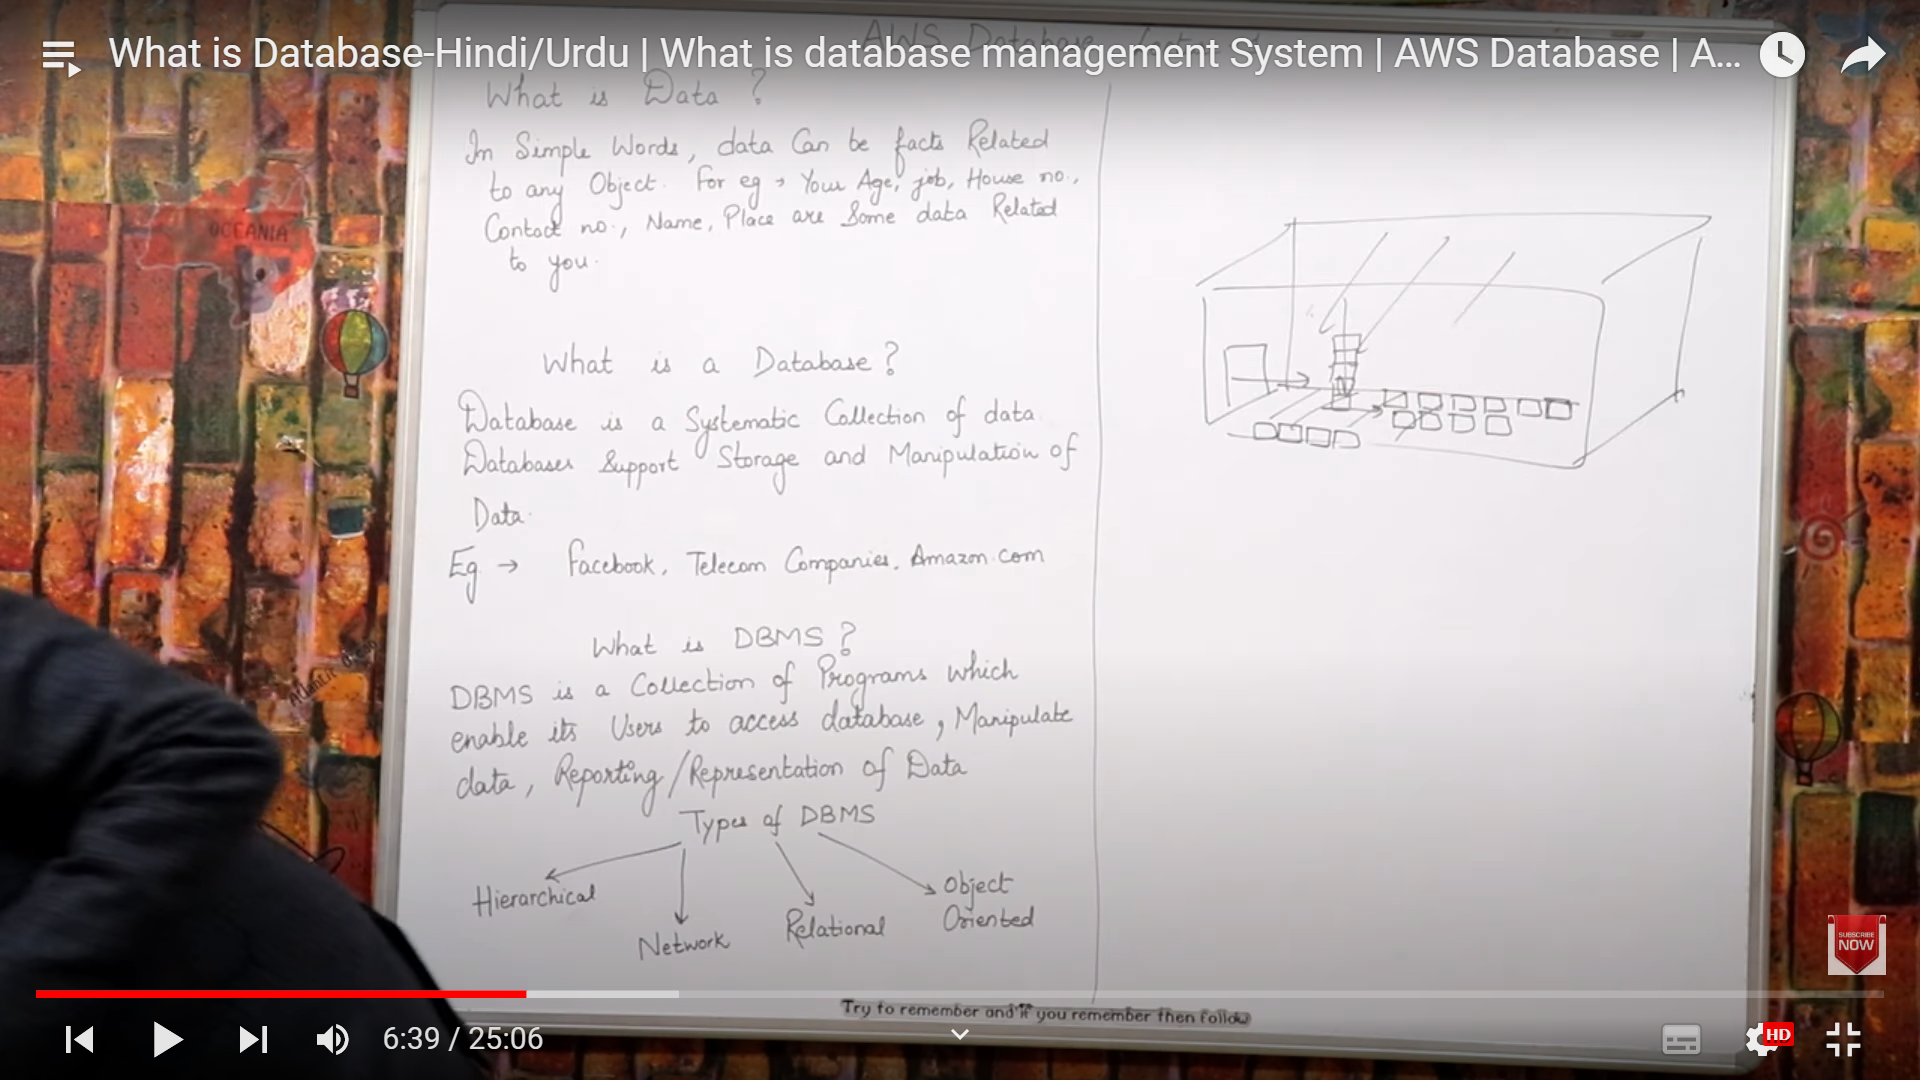 What is Database-Hindi/Urdu | What is database management System | AWS Database | A...
AWS Database
What is Data ?
In Simple Words, data Can be facts Related
to any Object. For eg → Your Age, job, House no.,
Contact no., Name, Place are Some data Related
to you.
What is a Database?
Database is a Systematic Collection of data
Databases Support Storage and Manipulation of
Data.
Eg → Facebook, Telecom Companies, Amazon.com
What is DBMS?
DBMS is a Collection of Programs which
enable its Users to access database, Manipulate
data, Reporting/Representation of Data
Types of DBMS
Hierarchical
Network
Relational
Object
Oriented
OCEANIA
Atlantic
SUBSCRIBE
NOW
Try to remember and if you remember then follow
6:39 / 25:06
HD